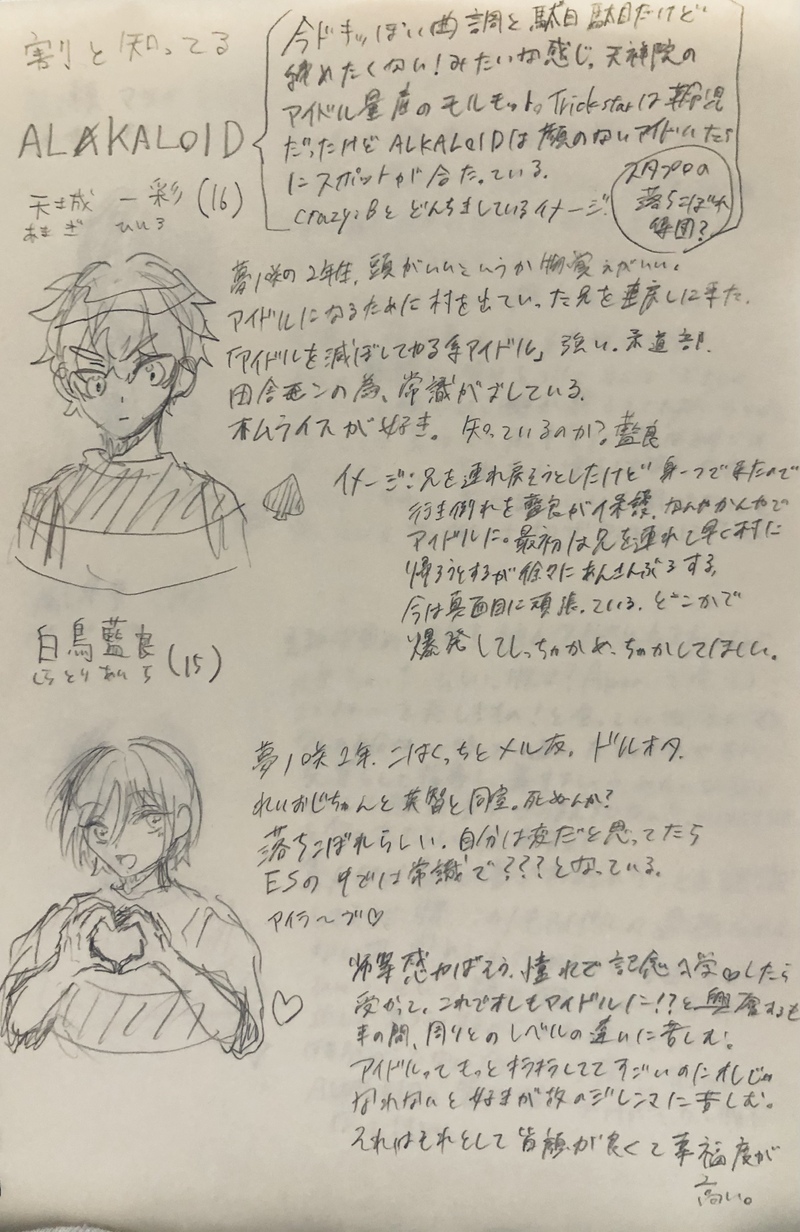 割と知ってる
ALKALOID
今ドキっぽい曲調と駄目駄目だけど
諦めたくない!みたいな感じ。天祥院の
アイドル量産のモルモット。Trickstarは革命児
だったけどALKALOIDは顔のないアイドルたち
にスポットが合たっている。
crazy:Bとどんちきしているイメージ。
スタプロの
落ちこぼれ
集団?
天城 一彩(16)
あまぎ ひいろ
夢ノ咲の2年生。頭がいいというか物覚えがいい。
アイドルになるために村を出ていった兄を連戻しに来た。
「アイドルを滅ぼしてやる系アイドル」強い。柔道部。
田舎モンの為、常識がズレている。
オムライスが好き。知っているのか?藍良
イメージ:兄を連れ戻そうとしたけど身一つで来たので
行き倒れを藍良が保護。なんやかんやで
アイドルに。最初は兄を連れて早く村に
帰ろうとするが徐々にあんさんぶるする。
今は真面目に頑張っている。どこかで
爆発してしっちゃかめっちゃかしてほしい。
白鳥藍良(15)
しらとりあいら
夢ノ咲1年。こはくっちとメル友。ドルオタ。
れいおじちゃんと英智と同室。死ぬんか?
落ちこぼれらしい。自分は友だと思ってたら
ESの中では常識で???となっている。
アイラ〜ヴ♡
劣等感やばそう。憧れで記念入学♡したら
受かって、これでオレもアイドルに!?と興奮するも
束の間、周りとのレベルの違いに苦しむ。
アイドルってもっとキラキラしててすごいのにオレじゃ
なれないと好きが故のジレンマに苦しむ。
それはそれとして皆顔が良くて幸福度が
高い。